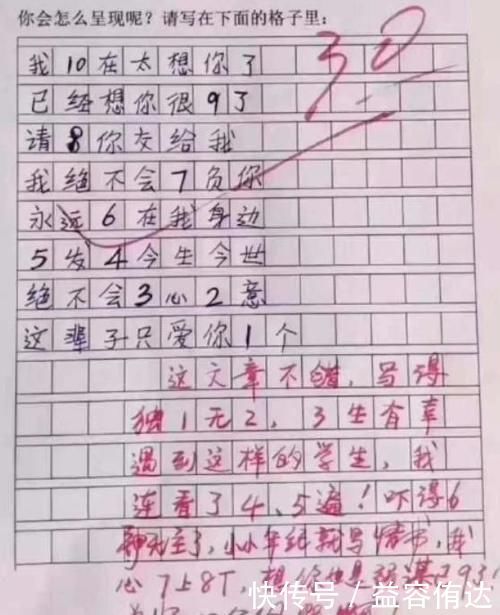 你会怎么呈现呢？请写在下面的格子里：
30
我10在太想你了
已经想你很9了
请8你交给我
我绝不会7负你
永远6在我身边
5发4今生今世
绝不会3心2意
这辈子只爱你1个
这文章不错，写得
独1无2，3生有幸
遇到这样的学生，我
连看了4、5遍！吓得6
神无主了，小小年纪就写情书，我
心7上8下，
快传号/益容侑达